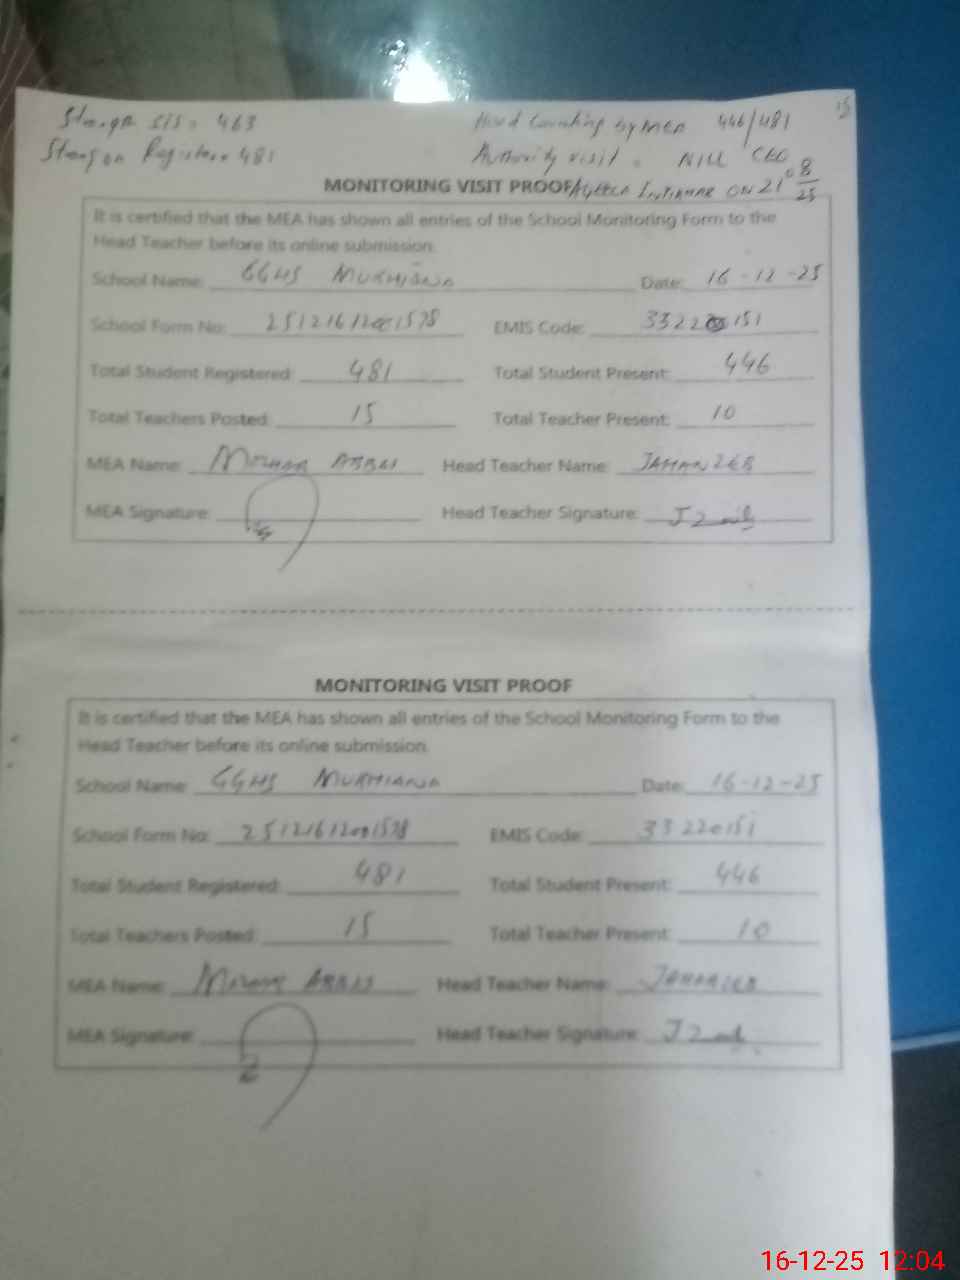 Strength SIS = 463
Head Counting by MEA 446/481
15
Strength on Register = 481
Authority visit = NILL CEO
MONITORING VISIT PROOF
ON 21-08-25
It is certified that the MEA has shown all entries of the School Monitoring Form to the
Head Teacher before its online submission.
School Name: GGHS MUKHIANA Date: 16-12-25
School Form No: 25121612001578 EMIS Code: 33220151
Total Student Registered: 481 Total Student Present: 446
Total Teachers Posted: 15 Total Teacher Present: 10
MEA Name: ABBAS Head Teacher Name: JAHANZEB
MEA Signature: Head Teacher Signature:
MONITORING VISIT PROOF
It is certified that the MEA has shown all entries of the School Monitoring Form to the
Head Teacher before its online submission.
School Name: GGHS MUKHIANA Date: 16-12-25
School Form No: 25121612001578 EMIS Code: 33220151
Total Student Registered: 481 Total Student Present: 446
Total Teachers Posted: 15 Total Teacher Present: 10
MEA Name: ABBAS Head Teacher Name: JAHANZEB
MEA Signature: Head Teacher Signature:
16-12-25 12:04